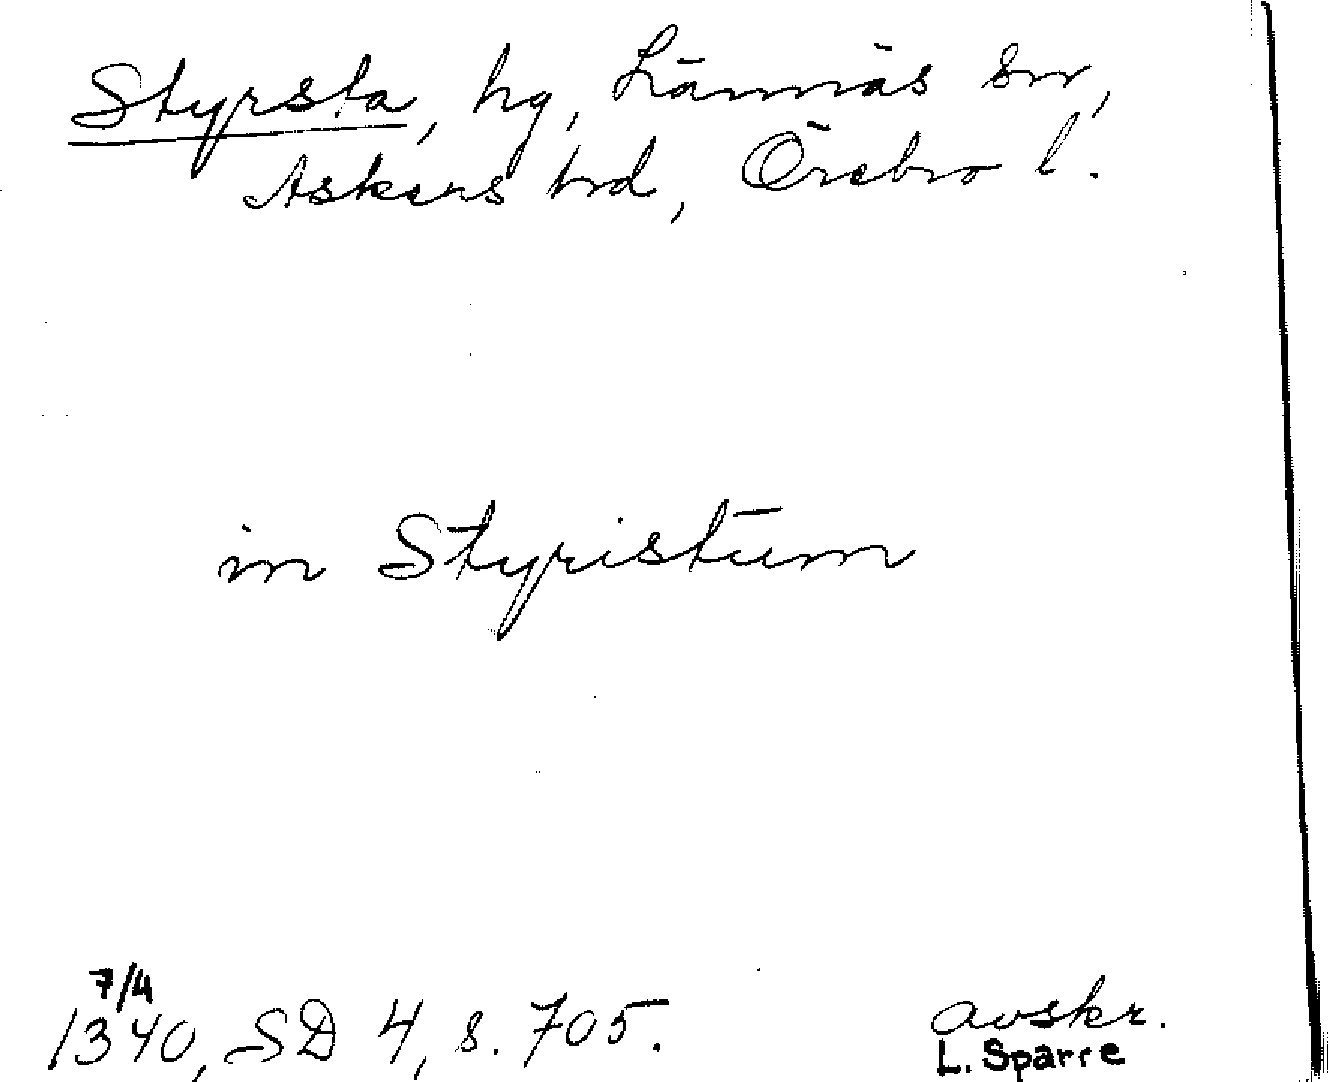 Styrsta, hg, Lännäs sn,
Askers hrd, Örebro l.
in Styristum
7/4
1340, SD 4, s. 705.
avskr.
L. Sparre